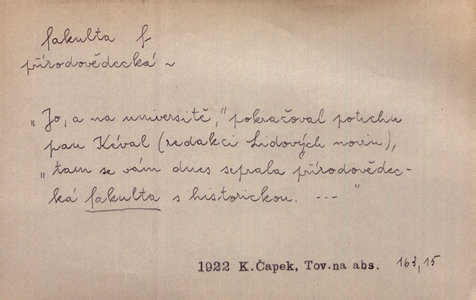 fakulta f
přírodovědecká ~
„Jo, a na universitě," pokračoval potichu
pan Kéval (redakci Lidových novin),
„tam se vám dnes seprala přírodovědec-
ká fakulta s historickou. --- "
1922 K.Čapek, Tov.na abs. 163,15